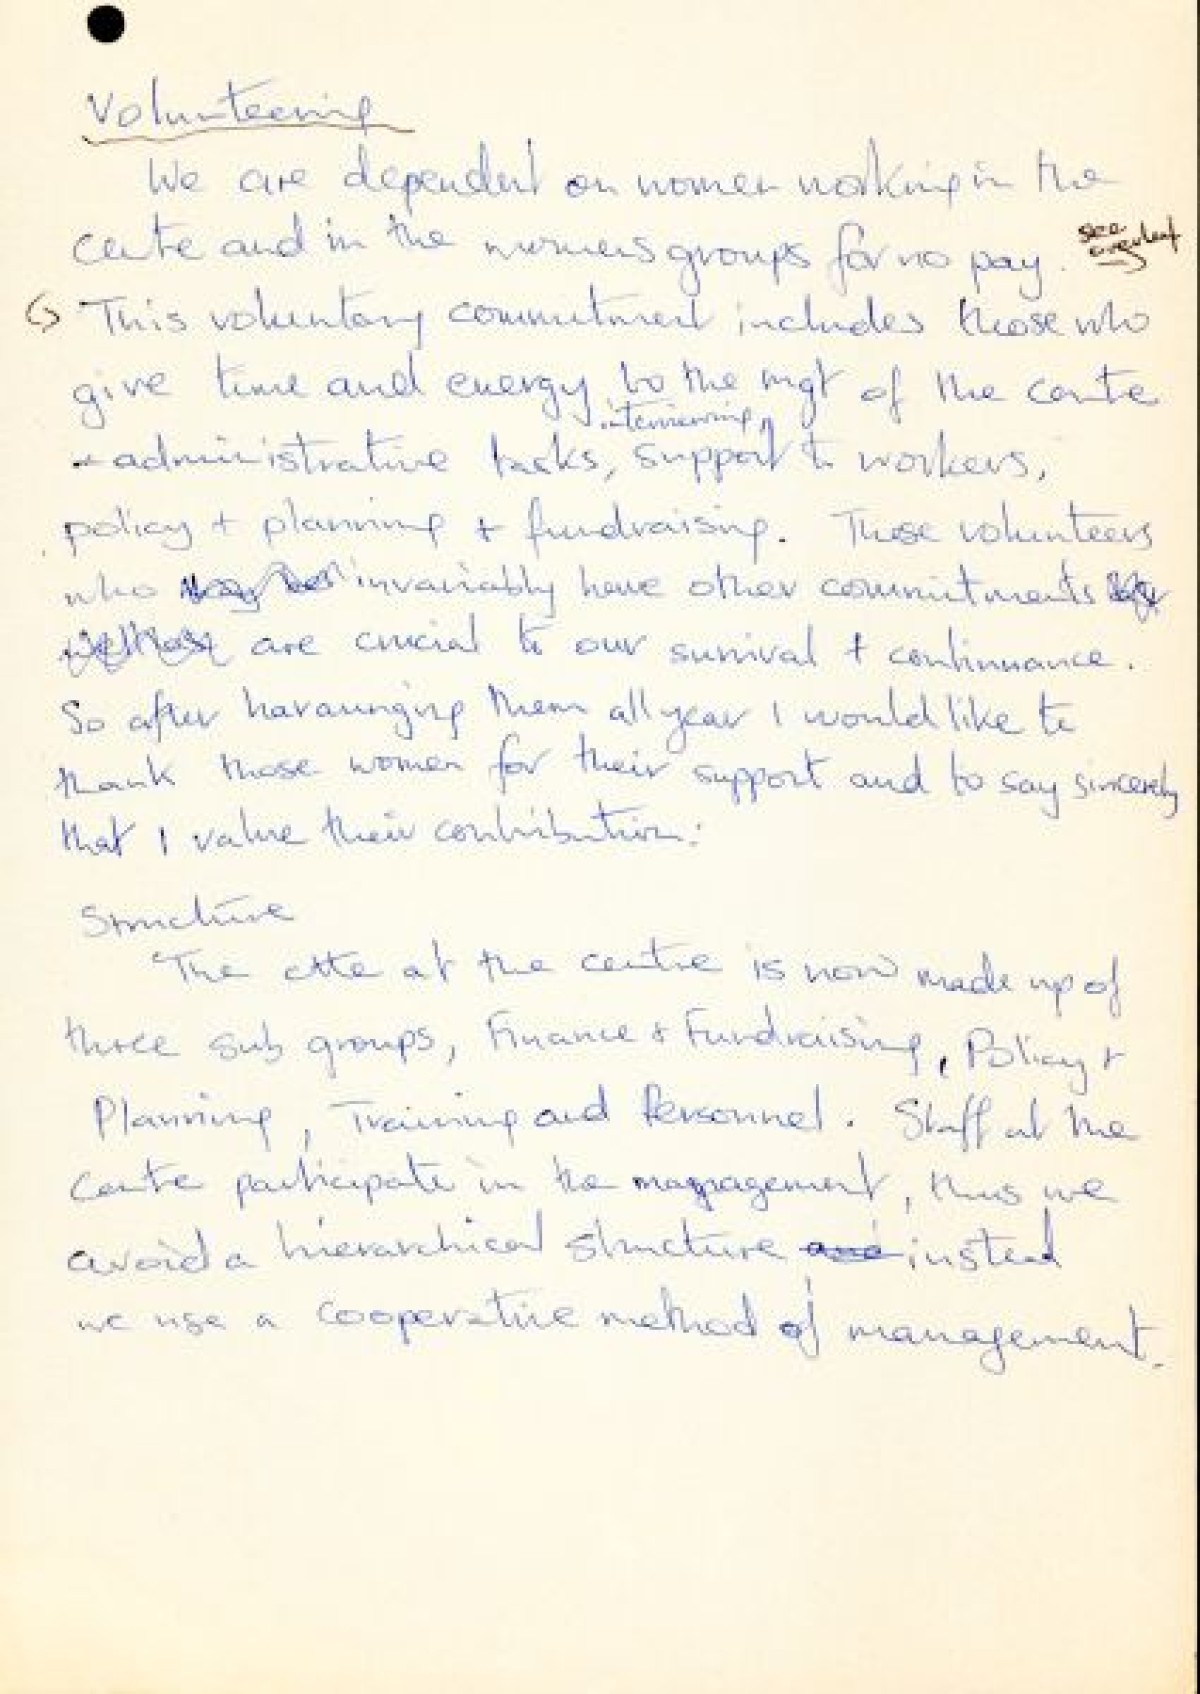 Volunteering
We are dependent on women working in the
centre and in the womens groups for no pay. see
This voluntary commitment includes those who
give time and energy to the mgt of the centre
interviewing,
- administrative tasks, support to workers,
policy + planning + fundraising. These volunteers
who invariably have other commitments
are crucial to our survival + continuance.
So after haraunging them all year I would like to
thank those women for their support and to say sincerely
that I value their contribution:
Structure
The ctte at the centre is now made up of
three sub groups, Finance + Fundraising, Policy +
Planning, Training and Personnel. Staff at the
centre participate in the management, thus we
avoid a hierarchical structure and instead
we use a cooperative method of management.